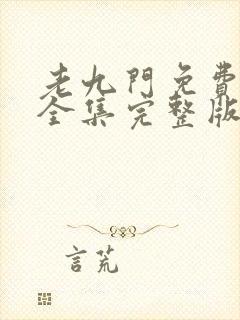 老九門免費
全集完整版
言荒